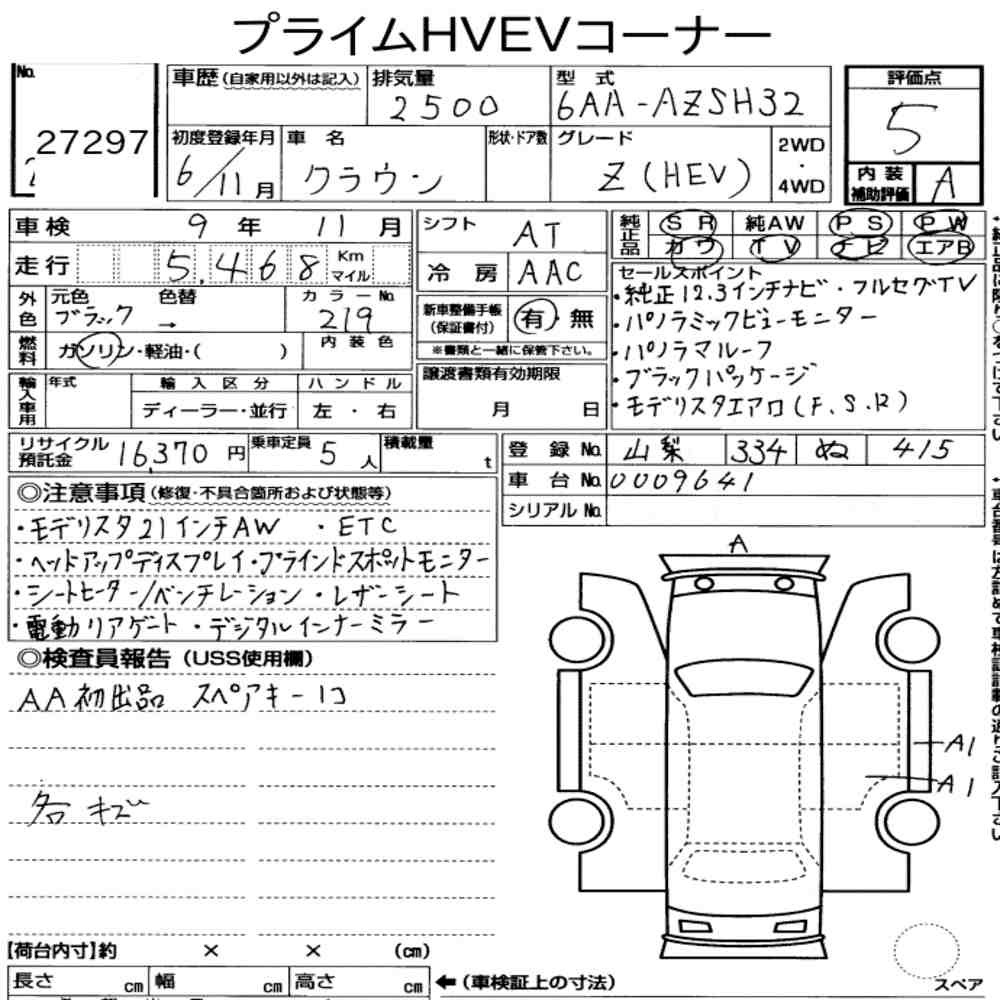 プライムHVEVコーナー
No. 27297
車歴(自家用以外は記入) 排気量 2500 型式 6AA-AZSH32
評価点 5
初度登録年月 6/11月 車名 クラウン 形状・ドア数 グレード Z(HEV) 2WD・4WD
内装補助評価 A
車検 9年 11月 シフト AT
純正品 SR 純AW PS PW
カワ TV ナビ エアB
走行 5,468 Km マイル 冷房 AAC
外色 元色 ブラック → 色替 カラーNo. 219
内装色
燃料 ガソリン・軽油・( )
新車整備手帳(保証書付) 有・無
※書類と一緒に保管下さい。
セールスポイント
・純正12.3インチナビ・フルセグTV
・パノラミックビューモニター
・パノラマルーフ
・ブラックパッケージ
・モデリスタエアロ(F.S.R)
輸入車用 年式 輸入区分 ハンドル
ディーラー・並行 左・右
譲渡書類有効期限
月 日
リサイクル預託金 16,370円 乗車定員 5人 積載量 t
登録No. 山梨 334 ぬ 415
車台No. 0009641
シリアルNo.
◎注意事項(修復・不具合箇所および状態等)
・モデリスタ21インチAW ・ETC
・ヘッドアップディスプレイ・ブラインドスポットモニター
・シートヒーター/ベンチレーション・レザーシート
・電動リアゲート・デジタルインナーミラー
◎検査員報告(USS使用欄)
AA初出品 スペアキー1コ
各キズ
A
A1
A1
【荷台内寸】約 × × (cm)
長さ cm 幅 cm 高さ cm ←(車検証上の寸法)
スペア